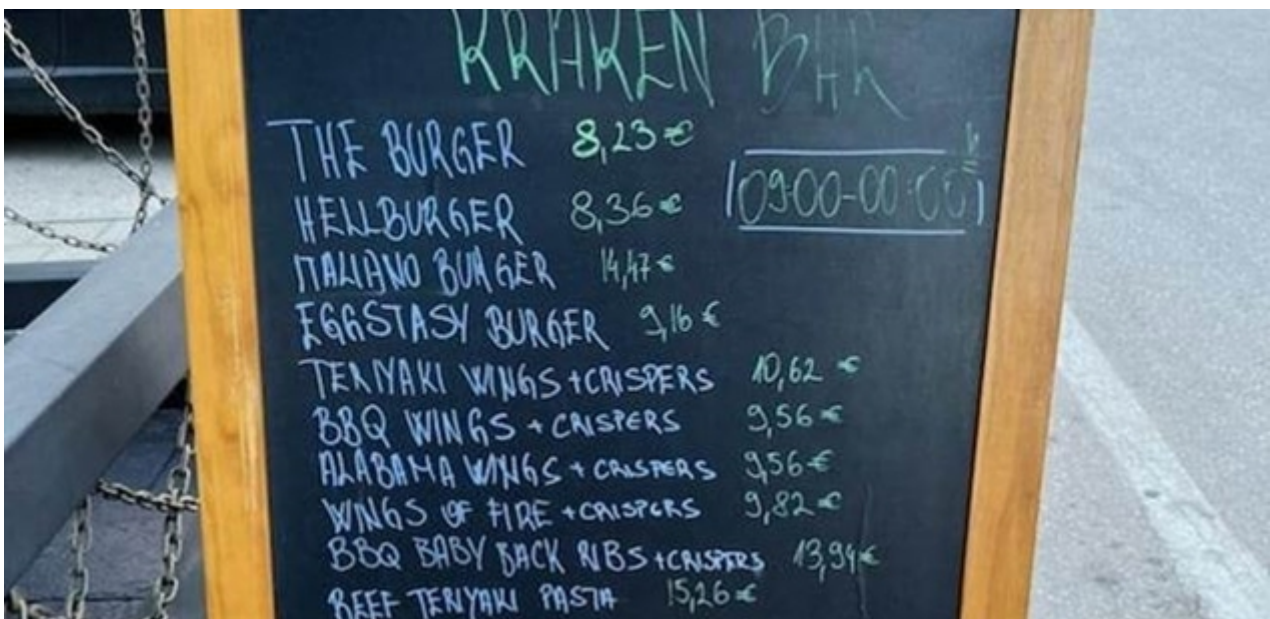 KRAKEN BAR
THE BURGER 8,23€
HELLBURGER 8,36€
09:00-00:00 h
ITALIANO BURGER 14,47€
EGGSTASY BURGER 9,16€
TERIYAKI WINGS + CRISPERS 10,62€
BBQ WINGS + CRISPERS 9,56€
ALABAMA WINGS + CRISPERS 9,56€
WINGS OF FIRE + CRISPERS 9,82€
BBQ BABY BACK RIBS + CRISPERS 13,94€
BEEF TERIYAKI PASTA 15,26€